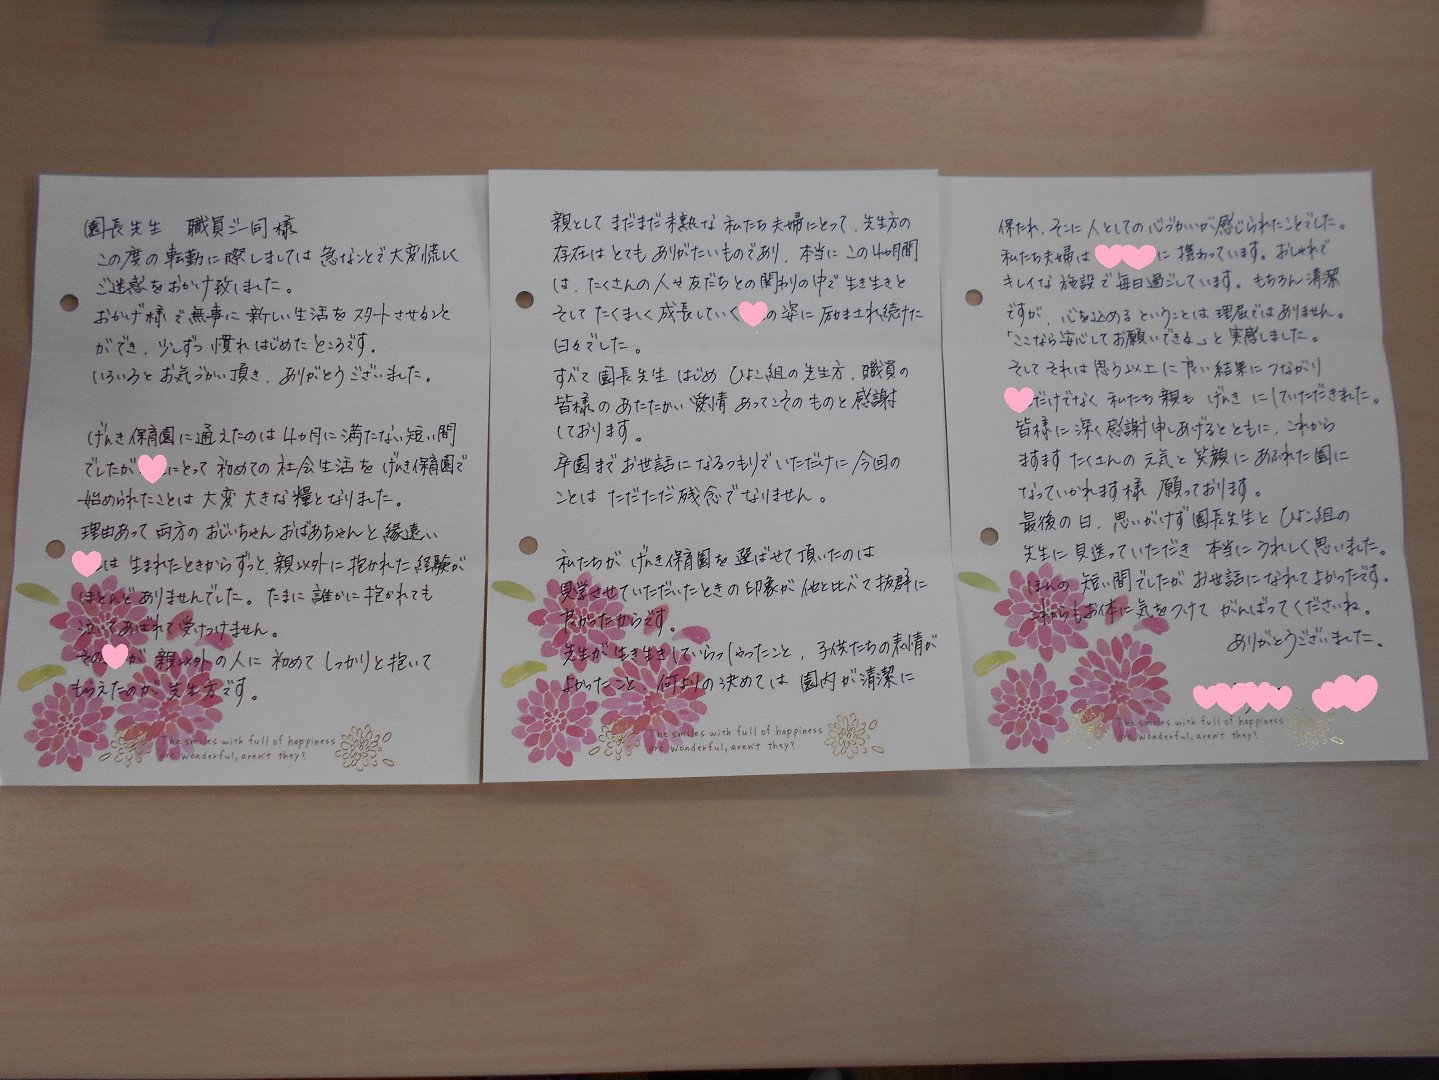 園長先生 職員ご一同様
この度の転勤に際しましては 急なことで大変慌しく
ご迷惑をおかけ致しました。
おかげ様で無事に新しい生活をスタートさせること
ができ、少しずつ慣れはじめたところです。
いろいろとお気づかい頂き、ありがとうございました。
げんき保育園に通えたのは4ヶ月に満たない短い間
でしたが にとって初めての社会生活をげんき保育園で
始められたことは大変大きな糧となりました。
理由あって両方のおじいちゃんおばあちゃんと縁遠い
は生まれたときからずっと、親以外に抱かれた経験が
ほとんどありませんでした。たまに誰かに抱かれても
泣いてあばれて受けつけません。
その が親以外の人に初めてしっかりと抱いて
もらえたのが先生方です。
The smiles with full of happiness
are wonderful, aren't they?
親としてまだまだ未熟な私たち夫婦にとって、先生方の
存在はとてもありがたいものであり、本当にこの4ヶ月間
は、たくさんの人や友だちとの関わりの中で生き生きと
そしてたくましく成長していく の姿に励まされ続けた
日々でした。
すべて園長先生はじめひよこ組の先生方、職員の
皆様のあたたかい愛情あってこそのものと感謝
しております。
卒園までお世話になるつもりでいただけに今回の
ことはただただ残念でなりません。
私たちがげんき保育園を選ばせて頂いたのは
見学させていただいたときの印象が他と比べて抜群に
よかったからです。
先生が生き生きしていらっしゃったこと、子供たちの表情が
よかったこと、何よりの決めては園内が清潔に
The smiles with full of happiness
are wonderful, aren't they?
保たれ、そこに人としての心づかいが感じられたことでした。
私たち夫婦は に携わっています。おしゃれで
キレイな施設で毎日過ごしています。もちろん清潔
ですが、心を込めるということは理屈ではありません。
「ここなら安心してお願いできる。」と実感しました。
そしてそれは思う以上に良い結果につながり
だけでなく私たち親もげんきにしていただきました。
皆様に深く感謝申しあげるとともに、これから
ますますたくさんの元気と笑顔にあふれた園に
なっていかれます様願っております。
最後の日、思いがけず園長先生とひよこ組の
先生に見送っていただき本当にうれしく思いました。
ほんの短い間でしたがお世話になれてよかったです。
これからもお体に気をつけてがんばってくださいね。
ありがとうございました。
The smiles with full of happiness
are wonderful, aren't they?